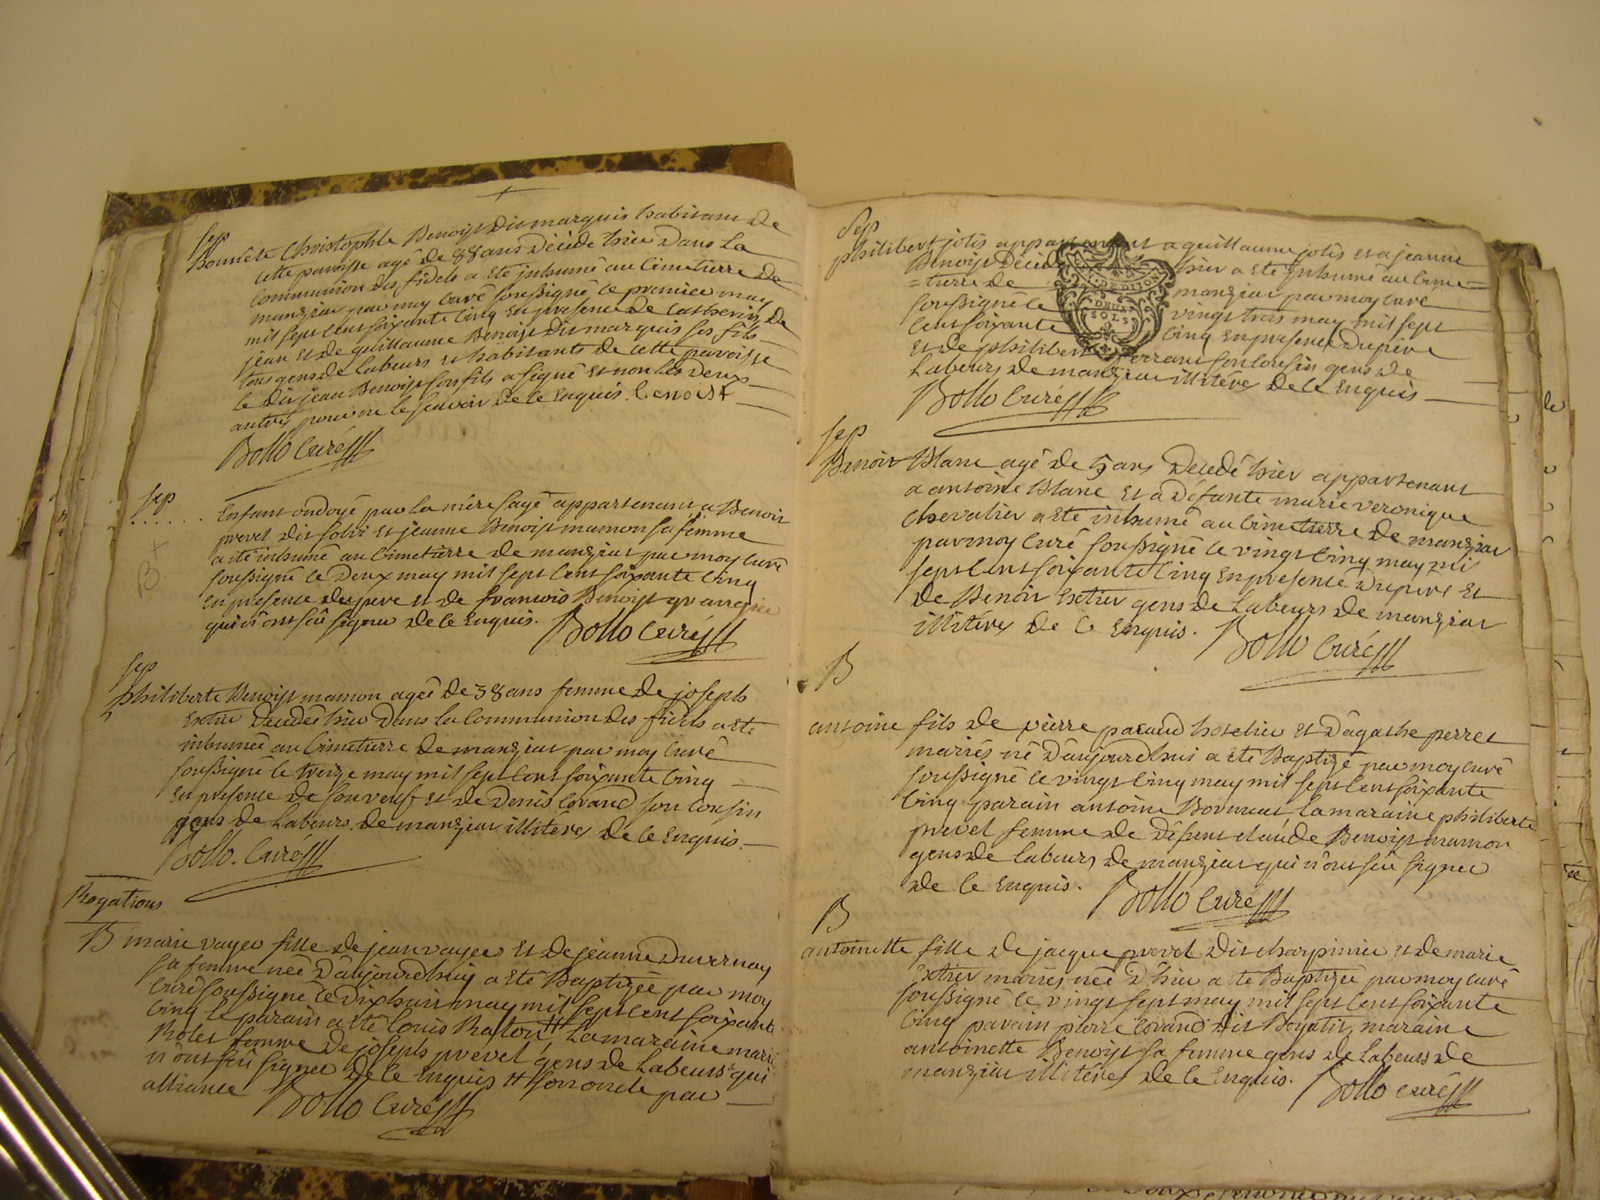 Sep
honnête Christophle Benoist dit marquis habitant de
cette paroisse agé de 88 ans décédé hier dans la
communion des fidels a eté inhumé au cimetierre de
manziat par moy curé soussigné le premier may
mil sept cent soixante cinq en presence de
jean et de guillaume Benoist dit marquis ses fils
tous gens de labeurs et habitants de cette paroisse
le dit jean Benoist son fils a signé et non les deux
autres pour ne le sçavoir de ce enquis. benoist
Bollo Curé
Sep
Enfant ondoyé par la mère sage appartenant a Benoit
prevel dit et jeanne Benoist mamon sa femme
a eté inhumé au cimetierre de manziat par moy curé
soussigné le deux may mil sept cent soixante cinq
en presence du pere et de francois Benoist
qui n'ont sçû signer de ce enquis. Bollo Curé
B
Sep
philiberte Benoist mamon agée de 38 ans femme de joseph
decedée hier dans la communion des fidels a eté
inhumée au cimetierre de manziat par moy curé
soussigné le treize may mil sept cent soixante cinq
en presence de son veuf et de Denis son cousin
gens de labeurs de manziat illitérés de ce enquis.
Bollo. Curé
Rogations
B marie vayer fille de jean vayer et de jeanne Duvernay
sa femme née d'aujourdhuy a eté Baptizée par moy
curé soussigné le dix huit may mil sept cent soixante
cinq le parain a eté louis la maraine marie
femme de joseph prevel gens de labeurs qui
n'ont sçû signer de ce enquis par
alliance Bollo Curé
Sep
philibert jolis appartenant a guillaume jolis et a jeanne
Benoist décédé hier a eté inhumé au cime=
=tiere de manziat par moy curé
soussigné le vingt trois may mil sept
cent soixante cinq en presence du père
et de philibert son cousin gens de
labeurs de manziat illitérés de ce enquis
Bollo Curé
Sep
Benoit Blanc agé de 5 ans decedé hier appartenant
a antoine Blanc et a défunte marie veronique
chevalier a eté inhumé au cimetierre de manziat
par moy curé soussigné le vingt cinq may mil
sept cent soixante cinq en presence du pere et
de Benoit gens de labeurs de manziat
illitérés de ce enquis. Bollo Curé
B
antoine fils de pierre hotelier et d'agathe perret
mariés né d'aujourdhui a eté Baptizé par moy curé
soussigné le vingt cinq may mil sept cent soixante
cinq parain antoine la maraine philiberte
prevel femme de défunt claude Benoist mamon
gens de labeurs de manziat qui n'ont sçû signer
de ce enquis. Bollo Curé
B
antoinette fille de jacque prevel dit et de marie
mariés née d'hier a eté Baptizée par moy curé
soussigné le vingt sept may mil sept cent soixante
cinq parain pierre dit maraine
antoinette Benoist sa femme gens de labeurs de
manziat illitérés de ce enquis. Bollo Curé